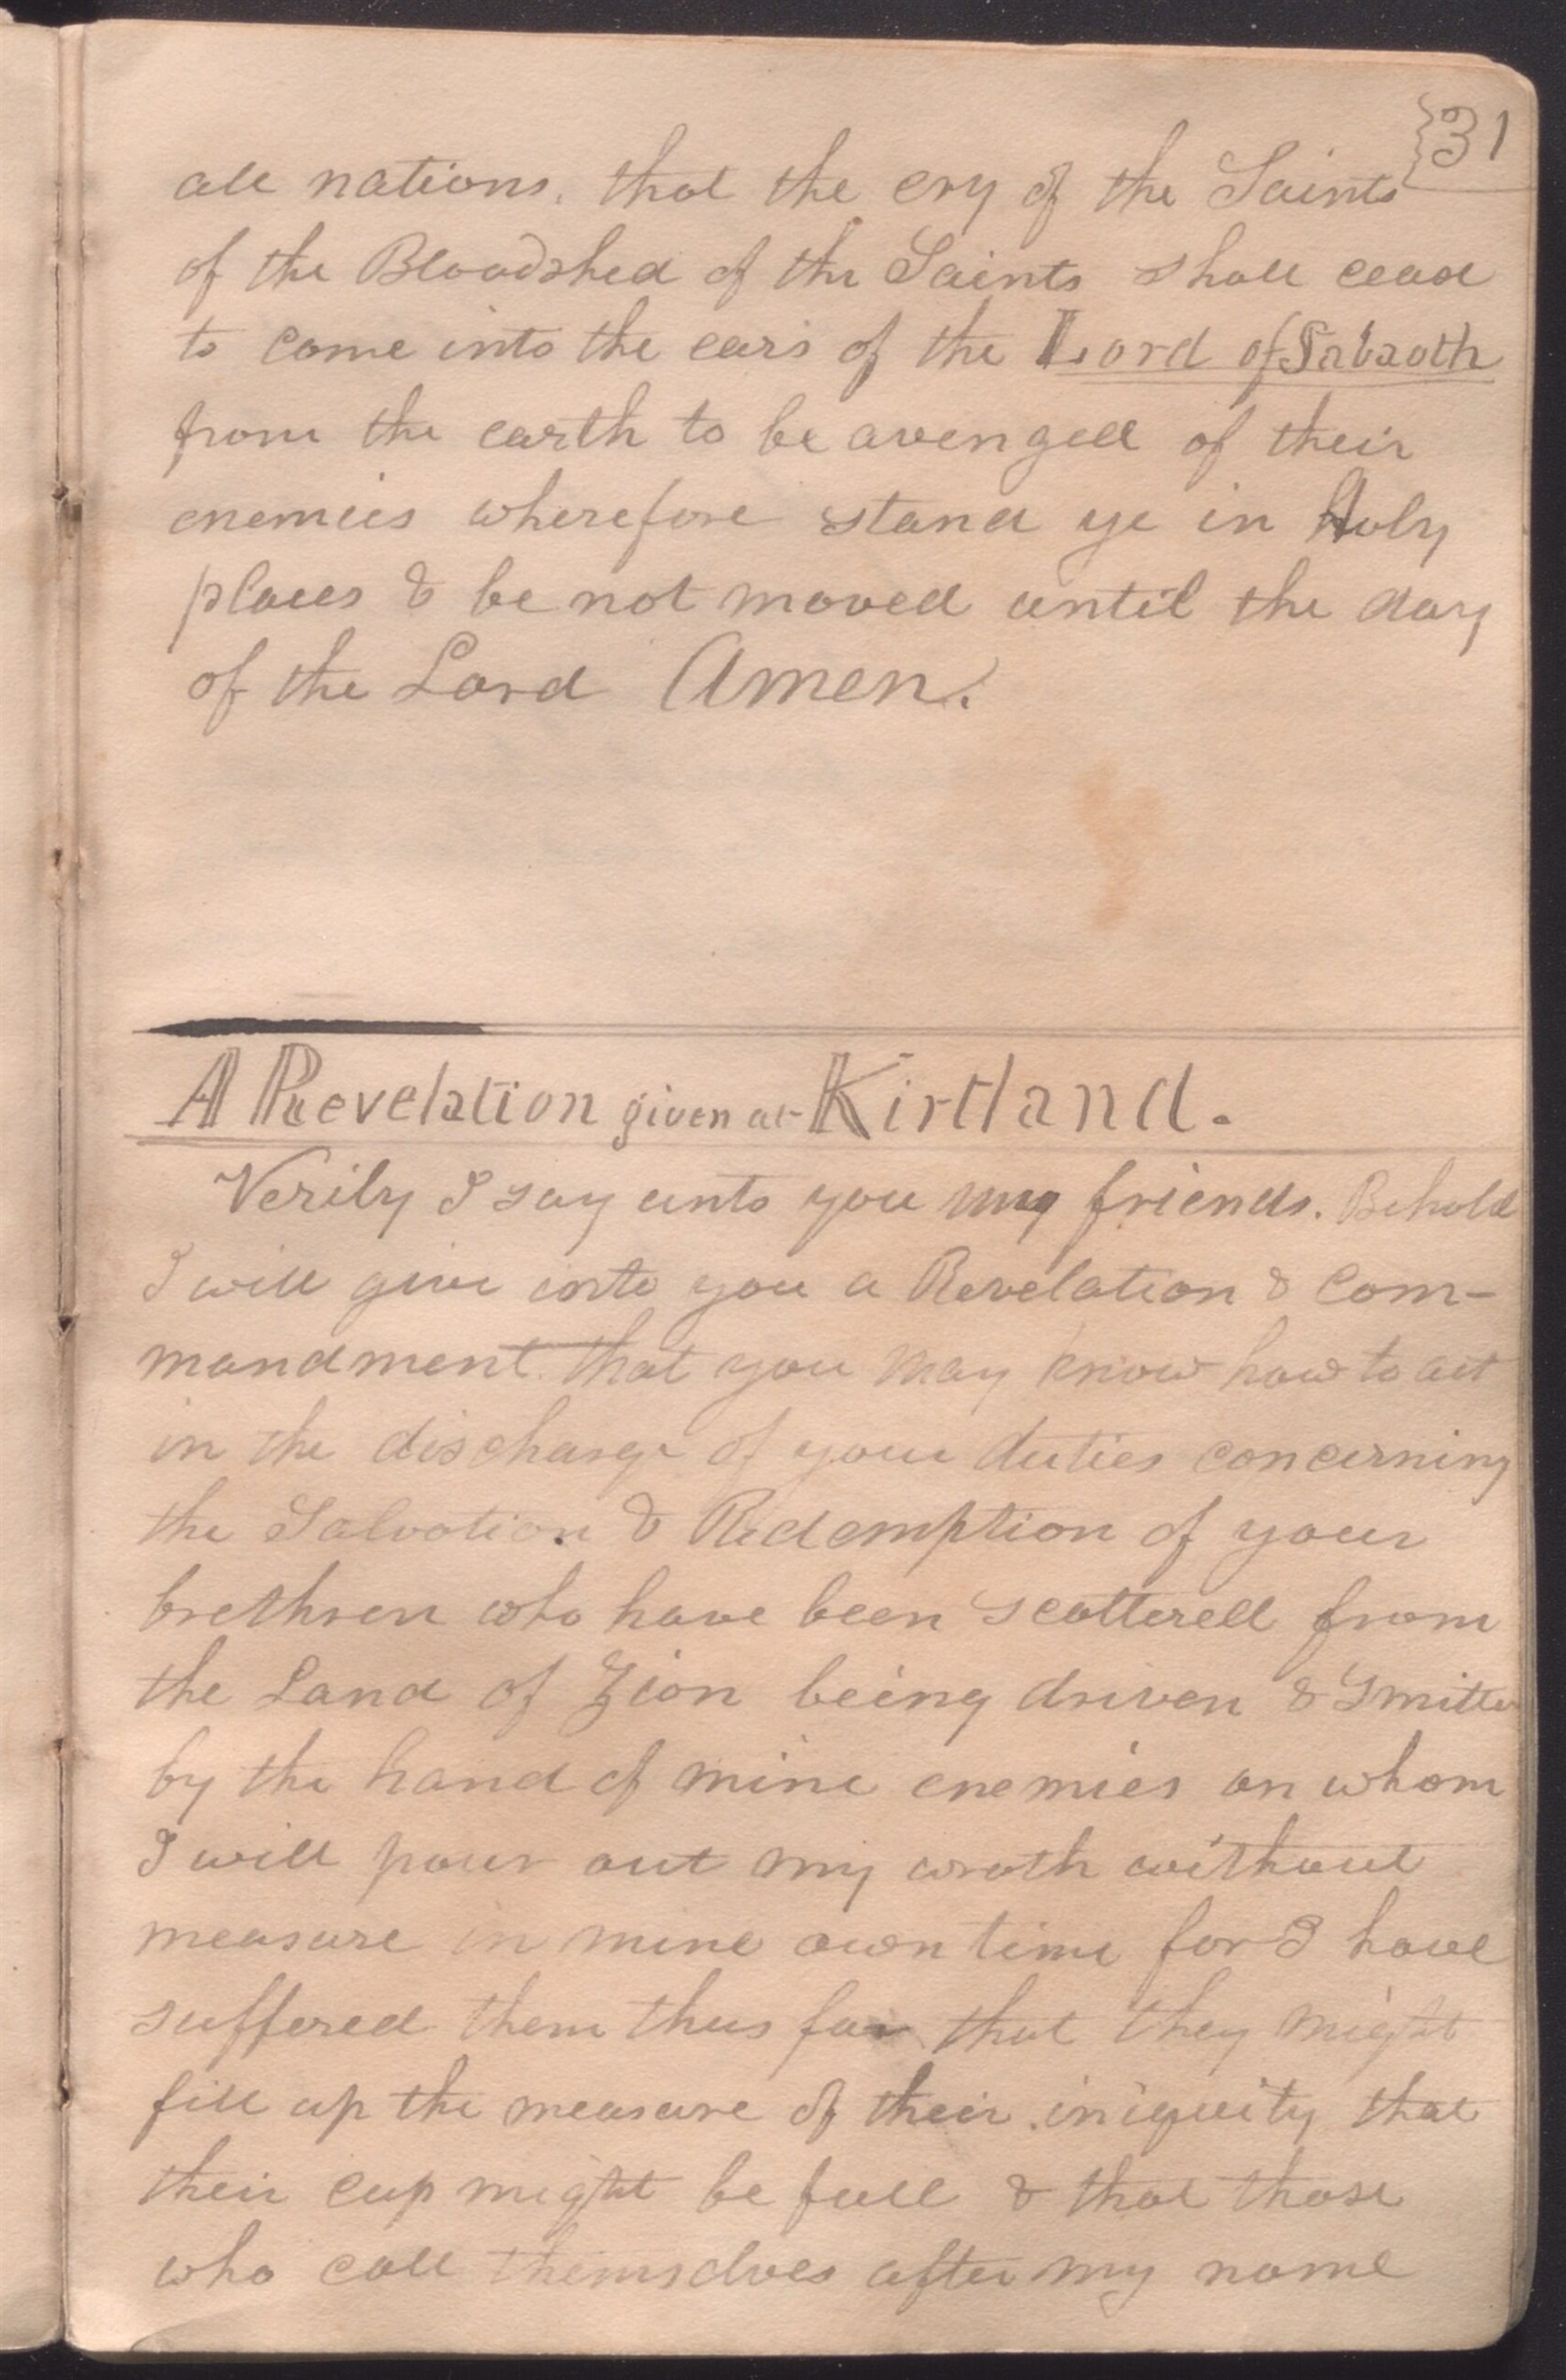 31
all nations. that the cry of the Saints
of the Bloodshed of the Saints shall cease
to come into the ears of the Lord of Sabaoth
from the earth to be avenged of their
enemies wherefore stand ye in Holy
places & be not moved until the day
of the Lord Amen.
A Revelation given at Kirtland.
Verily I say unto you my friends. Behold
I will give unto you a Revelation & Com-
mandment that you may know how to act
in the discharge of your duties concerning
the Salvation & Redemption of your
brethren who have been scattered from
the Land of Zion being driven & Smitten
by the hand of mine enemies on whom
I will pour out my wrath without
measure in mine own time for I have
suffered them thus far that they might
fill up the measure of their iniquity that
their cup might be full & that those
who call themselves after my name